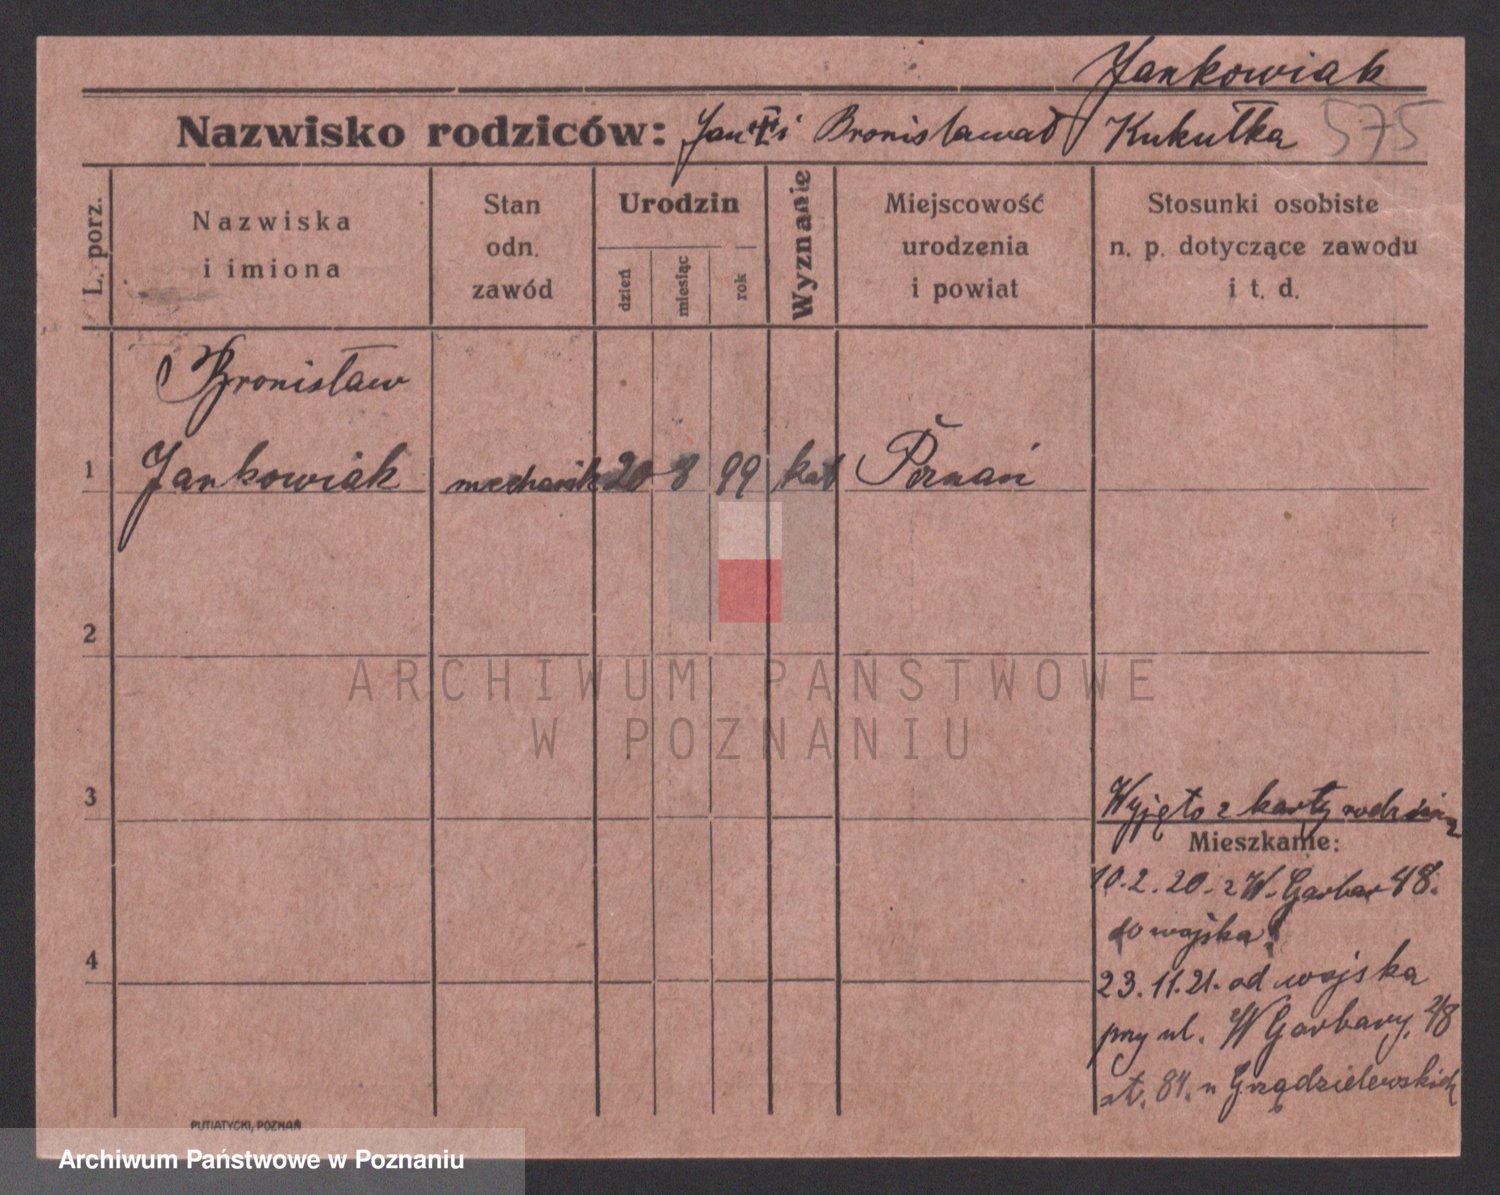 Jankowiak
Nazwisko rodziców: Jan † i Bronisława d Kukułka 575
L. porz.
Nazwiska
i imiona
Stan
odn.
zawód
Urodzin
dzień
miesiąc
rok
Wyznanie
Miejscowość
urodzenia
i powiat
Stosunki osobiste
n. p. dotyczące zawodu
i t. d.
Bronisław
1 Jankowiak mechanik 20 8 99 kat Poznań
2
ARCHIWUM PAŃSTWOWE
W POZNANIU
3
Wyjęto z karty rodzin
Mieszkanie:
10.2.20. z W. Garbar 48.
do wojska
4
23.11.21. od wojska
przy ul. W Garbary 48
84. u Grządzielewskich
PUTIATYCKI, POZNAŃ
Archiwum Państwowe w Poznaniu